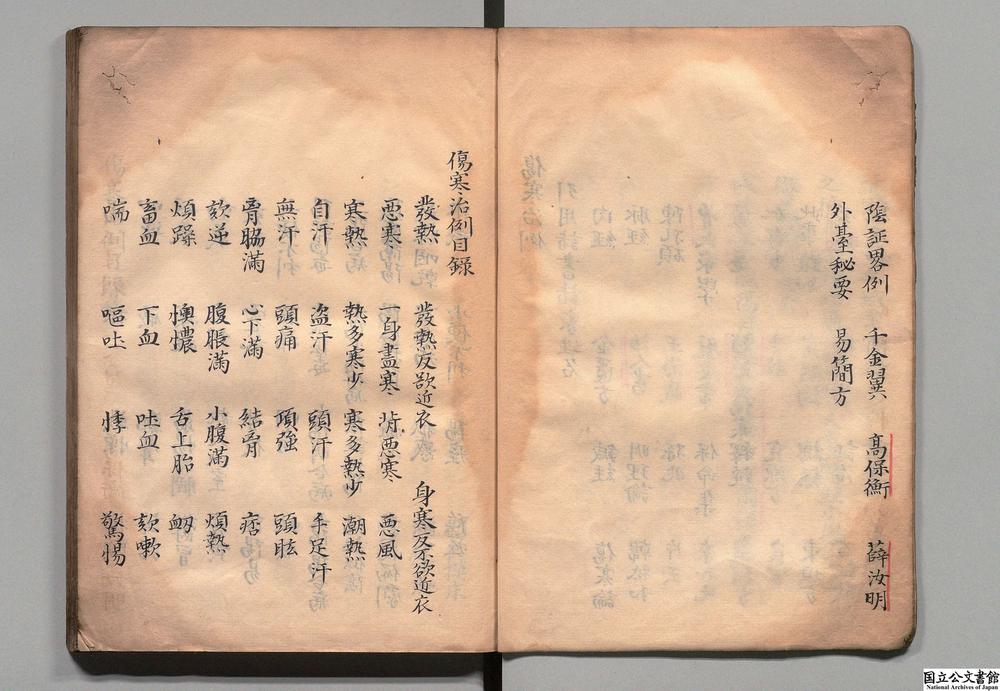 陰証畧例　千金翼　高保衡　薛汝明
外臺秘要　易簡方
傷寒治例目錄
發熱　發熱反欲近衣　身寒反不欲近衣
惡寒　一身盡寒　背惡寒　惡風
寒熱　熱多寒少　寒多熱少　潮熱
自汗　盗汗　頭汗　手足汗
無汗　頭痛　項強　頭眩
胷脇滿　心下滿　結胷　痞
欬逆　腹脹滿　小腹滿　煩熱
煩躁　懊憹　舌上胎　衂
畜血　下血　吐血　欬嗽
喘　嘔吐　悸　驚惕
国立公文書館
National Archives of Japan